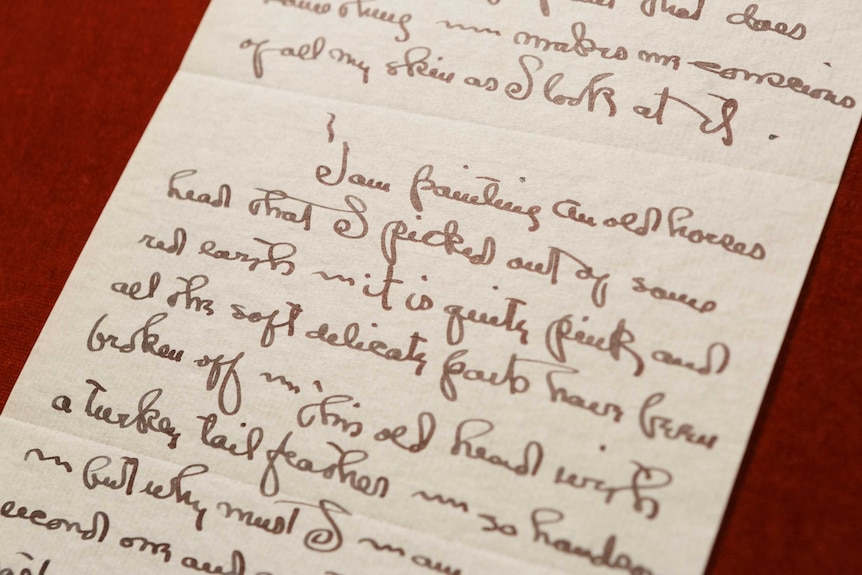 that does
something ~ makes me conscious
of all my skin as I look at it.
I am painting an old horses
head that I picked out of some
red earth ~ it is quite pink and
all the soft delicate parts have been
broken off ~ This old head with
a turkey tail feather ~ so handsome
~ but why must I ~ am
second one and